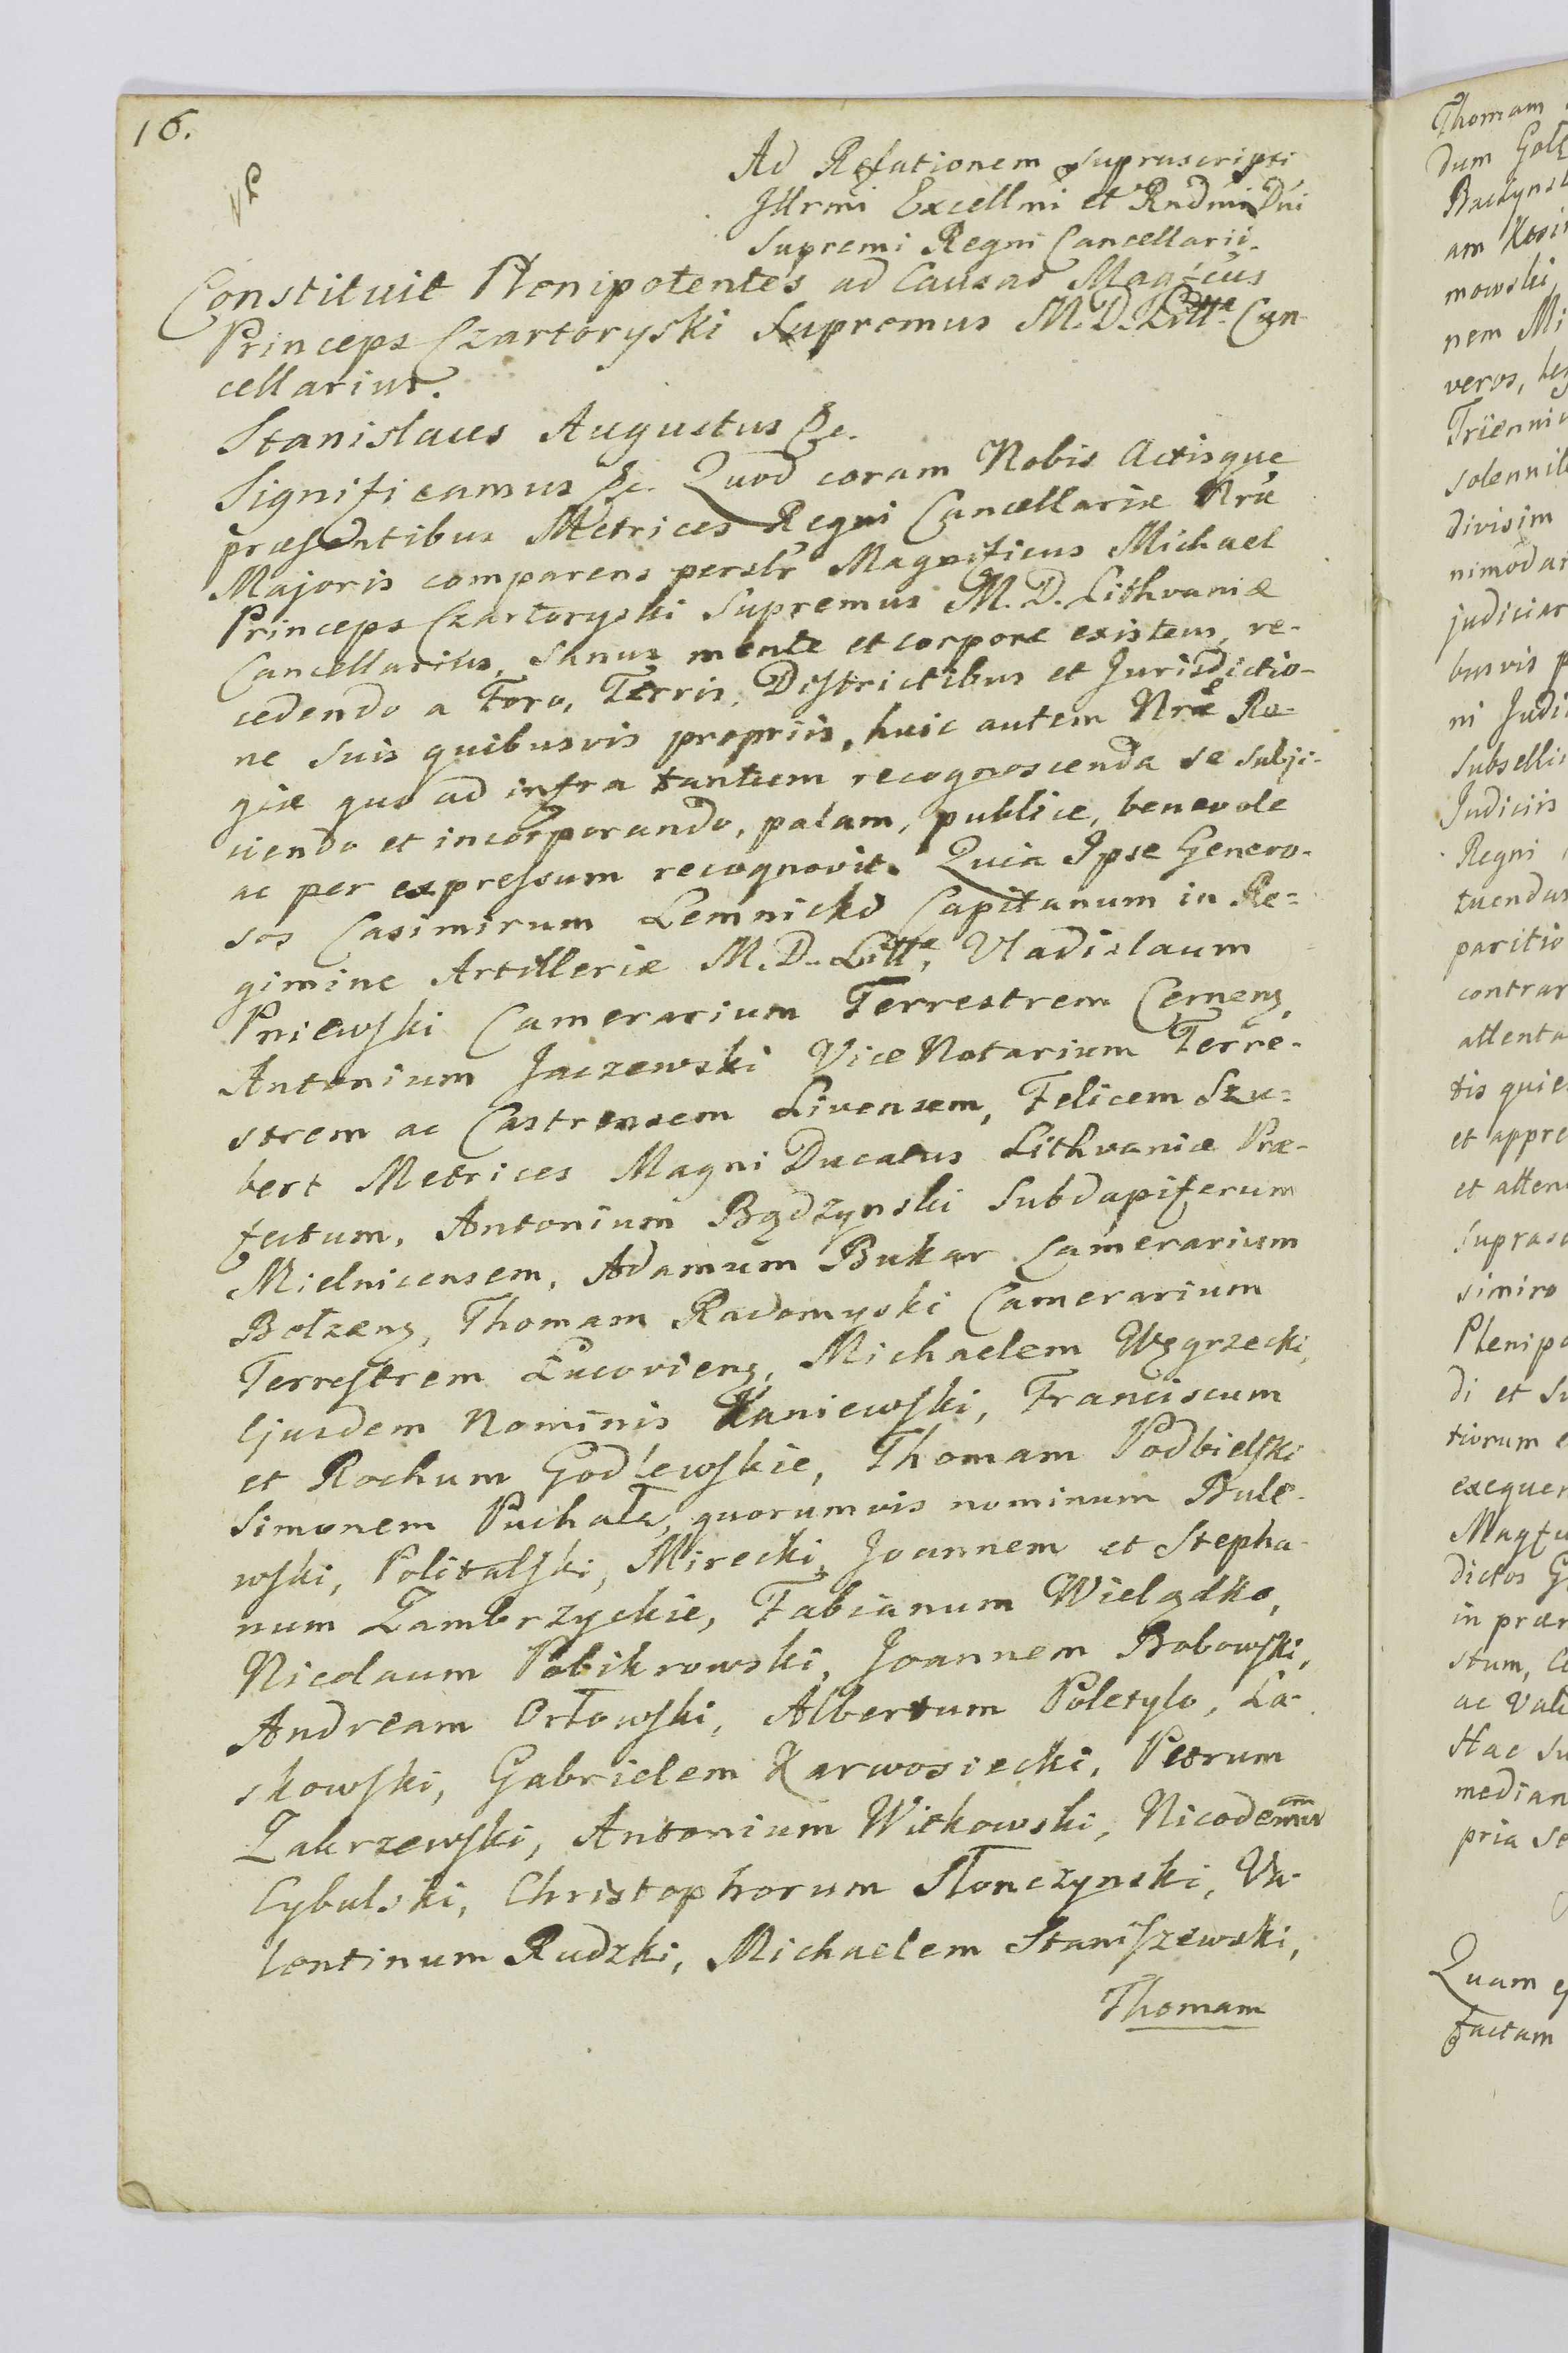 16.
Ad Relationem suprascripti
Jllrmi Excellmi et Rndmi Dni
Supremi Regni Cancellarii.
Constituit Plenipotentes ad Causas Magfcus
Princeps Czartoryski Supremus M. D. Litt: Can-
cellarius.
Stanislaus Augustus &c.
Significamus &c. Quod coram Nobis Actisque
præsentibus Metrices Regni Cancellariæ Nræ
Majoris comparens perslr Magnificus Michael
Princeps Czartoryski Supremus M. D. Lithvaniæ
Cancellarius, sanus mente et corpore existens, re-
cedendo a Foro, Terris, Districtibus et Jurisdictio-
ne suis quibusvis propriis, huic autem Nræ Re-
giæ quo ad infra tantum recognoscenda se subji-
ciendo et incorporando, palam, publice, benevole
ac per expressum recognovit. Quia Ipse Genero-
sos Casimirum Lemnicki Capitanum in Re-
gimine Artilleriæ M. D. Litt:, Vladislaum
Pniewski Camerarium Terrestrem Cernens,
Antonium Jaczewski Vice Notarium Terre-
strem ac Castrensem Livensem, Felicem Szu-
bert Metrices Magni Ducatus Lithvaniæ Præ-
fectum, Antonium Bądzynski Subdapiferum
Mielnicensem, Adamum Bukar Camerarium
Bełzens, Thomam Radomyski Camerarium
Terrestrem Lucoviens, Michaelem Węgrzecki,
Ejusdem Nominis Kaniewski, Franciscum
et Rochum Godlewskie, Thomam Podbielski
Simonem Puchała, quorumvis nominum Bule-
wski, Politalski, Mirecki, Joannem et Stepha-
num Zambrzyckie, Fabianum Wielądko,
Nicolaum Pobikrowski, Joannem Bobowski,
Andream Orłowski, Albertum Poletyło, La-
skowski, Gabrielem Karwosiecki, Petrum
Zakrzewski, Antonium Witkowski, Nicodemum
Cybulski, Christophorum Słonczynski, Va-
lentinum Rudzki, Michaelem Staniszewski,
Thomam
Thomam
dum
am
mowski
nem Mi
veros,
solennit
divisim
nimodar
judiciar
busvis p
ni Judi
Subselli
Judiciis
Regni
tuendas
paritio
contrar
attenta
tis quie
et appre
et atten
Suprasc
simiro
Plenipo
di et Su
tiorum e
exequen
Magfu
dictos G
in præm
stum,
ac Vali
Hac su
median
pria Se
Quam
Factam